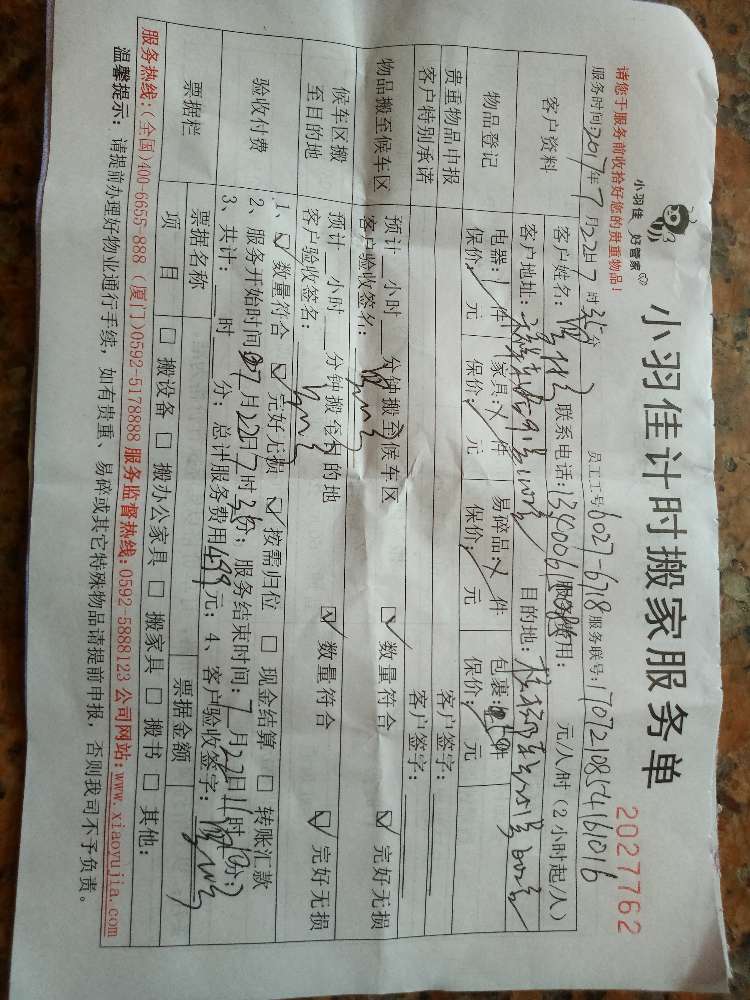 小羽佳 好管家
小羽佳计时搬家服务单
2027762
请您于服务前收拾好您的贵重物品!
服务时间:2017年7月22日7时35分 员工工号6027-6718 服务联号:1707210854161016
客户资料 客户姓名: 联系电话: 服务费用: 元/人/时(2小时起/人)
客户地址: 目的地:
物品登记 电器: 件 家具: 件 易碎品: 件 包裹: 件
保价: 元 保价: 元 保价: 元 保价: 元
贵重物品申报 客户签字:
客户特别承诺 客户签字:
物品搬至候车区 预计 小时 分钟搬至候车区 ☑ 数量符合 ☑ 完好无损
客户验收签名:
候车区搬至目的地 预计 小时 分钟搬至目的地 ☑ 数量符合 ☑ 完好无损
客户验收签名:
验收付费 1、☑ 数量符合 ☑ 完好无损 ☑ 按需归位 □ 现金结算 □ 转账汇款
2、服务开始时间 7月22日7时35分; 服务结束时间:7月22日11时 分;
3、共计: 时 分; 总计服务费用499元; 4、客户验收签字:
票据栏 票据名称 票据金额
项目 □ 搬设备 □ 搬办公家具 □ 搬家具 □ 搬书 □ 其他:
服务热线:(全国)400-6655-888 (厦门)0592-5178888 服务监督热线:0592-5888123 公司网站:www.xiaoyujia.com
温馨提示: 请提前办理好物业通行手续, 如有贵重、易碎或其它特殊物品请提前申报, 否则我司不予负责。